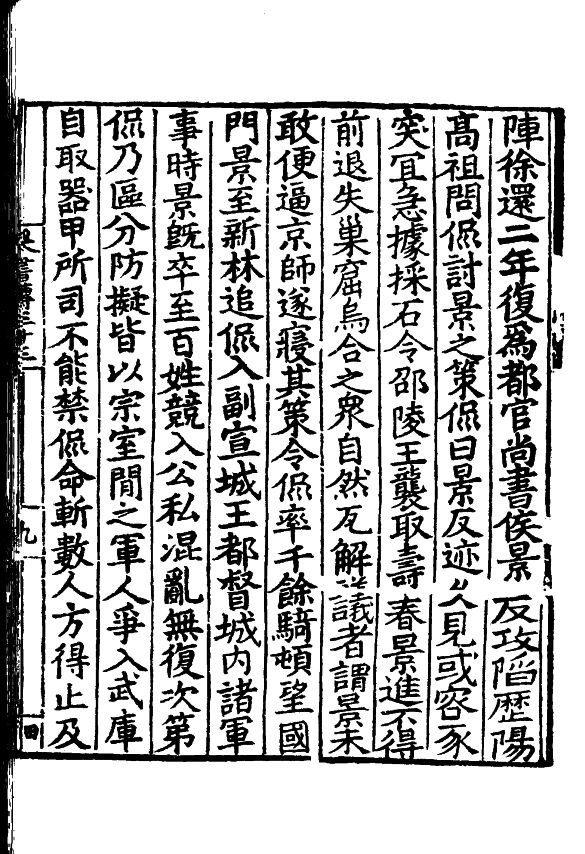 陣徐還二年復爲都官尚書侯景反攻陷歷陽
高祖問侃討景之策侃曰景反迹久見或容豕
突宜急據採石令邵陵王襲取壽春景進不得
前退失巢窟烏合之衆自然瓦解議者謂景未
敢便逼京師遂寢其策令侃率千餘騎頓望國
門景至新林追侃入副宣城王都督城内諸軍
事時景旣卒至百姓競入公私混亂無復次第
侃乃區分防擬皆以宗室閒之軍人爭入武庫
自取器甲所司不能禁侃命斬數人方得止及
九